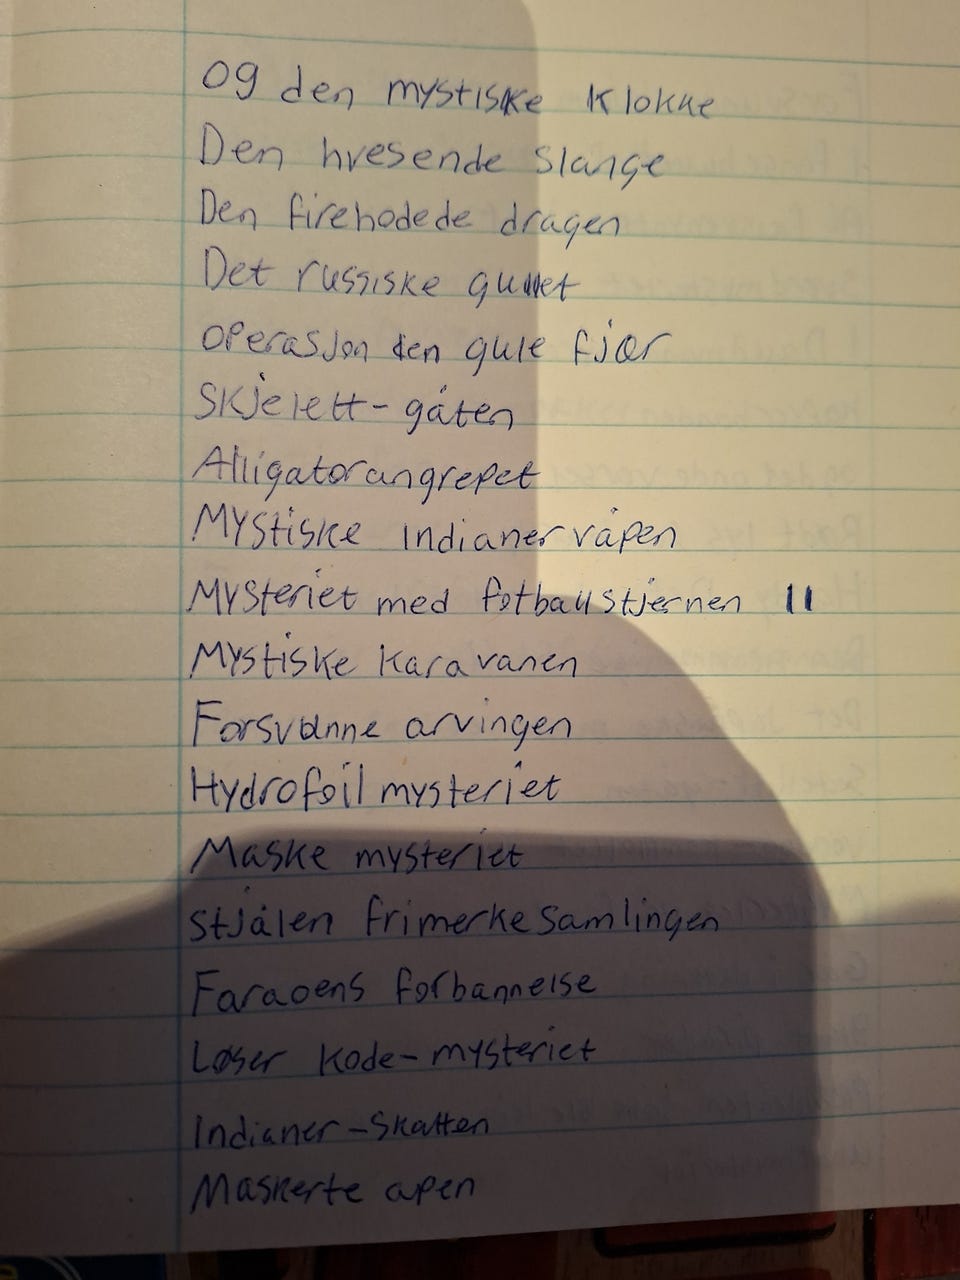 og den mystiske klokke
Den hvesende slange
Den firehodede dragen
Det russiske gullet
operasjon den gule fjær
Skjelett-gåten
Alligatorangrepet
Mystiske indianervåpen
Mysteriet med fotballstjernen II
Mystiske karavanen
Forsvunne arvingen
Hydrofoil mysteriet
Maske mysteriet
stjålen frimerkesamlingen
Faraoens forbannelse
Løser kode-mysteriet
Indianer-skatten
Maskerte apen